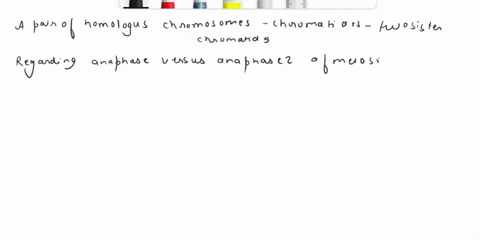 A pair of homologus chromosomes - chromatids - two sister
chromatids
Regarding anaphase versus anaphase 2 of meiosi